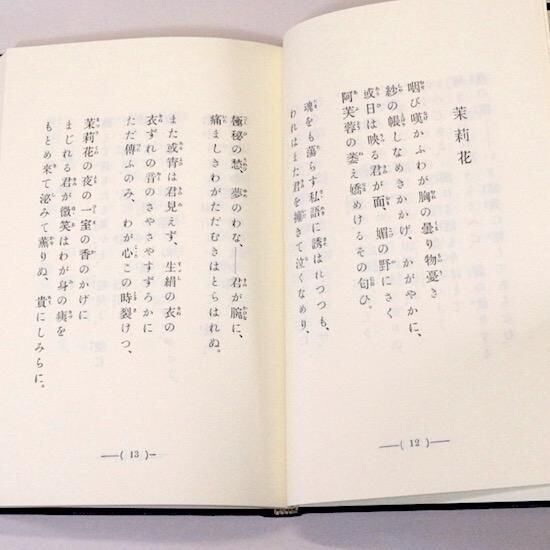 茉莉花
咽び嘆かふわが胸の曇り物憂き
紗の帳しなめきかかげ、かがやかに、
或日は映る君が面、媚の野にさく
阿芙蓉の萎え嬌めけるその匂ひ。
魂をも蕩らす私語に誘はれつつも、
われはまた君を擁きて泣くなめり、
極秘の愁、夢のわな、――君が腕に、
痛ましきわがただむきはとらはれぬ。
また或宵は君見えず、生絹の衣の
衣ずれの音のさやさやすずろかに
ただ傳ふのみ、わが心この時裂けつ、
茉莉花の夜の一室の香のかげに
まじれる君が微笑はわが身の痍を
もとめ来て泌みて薫りぬ、貴にしみらに。
( 12 )
( 13 )